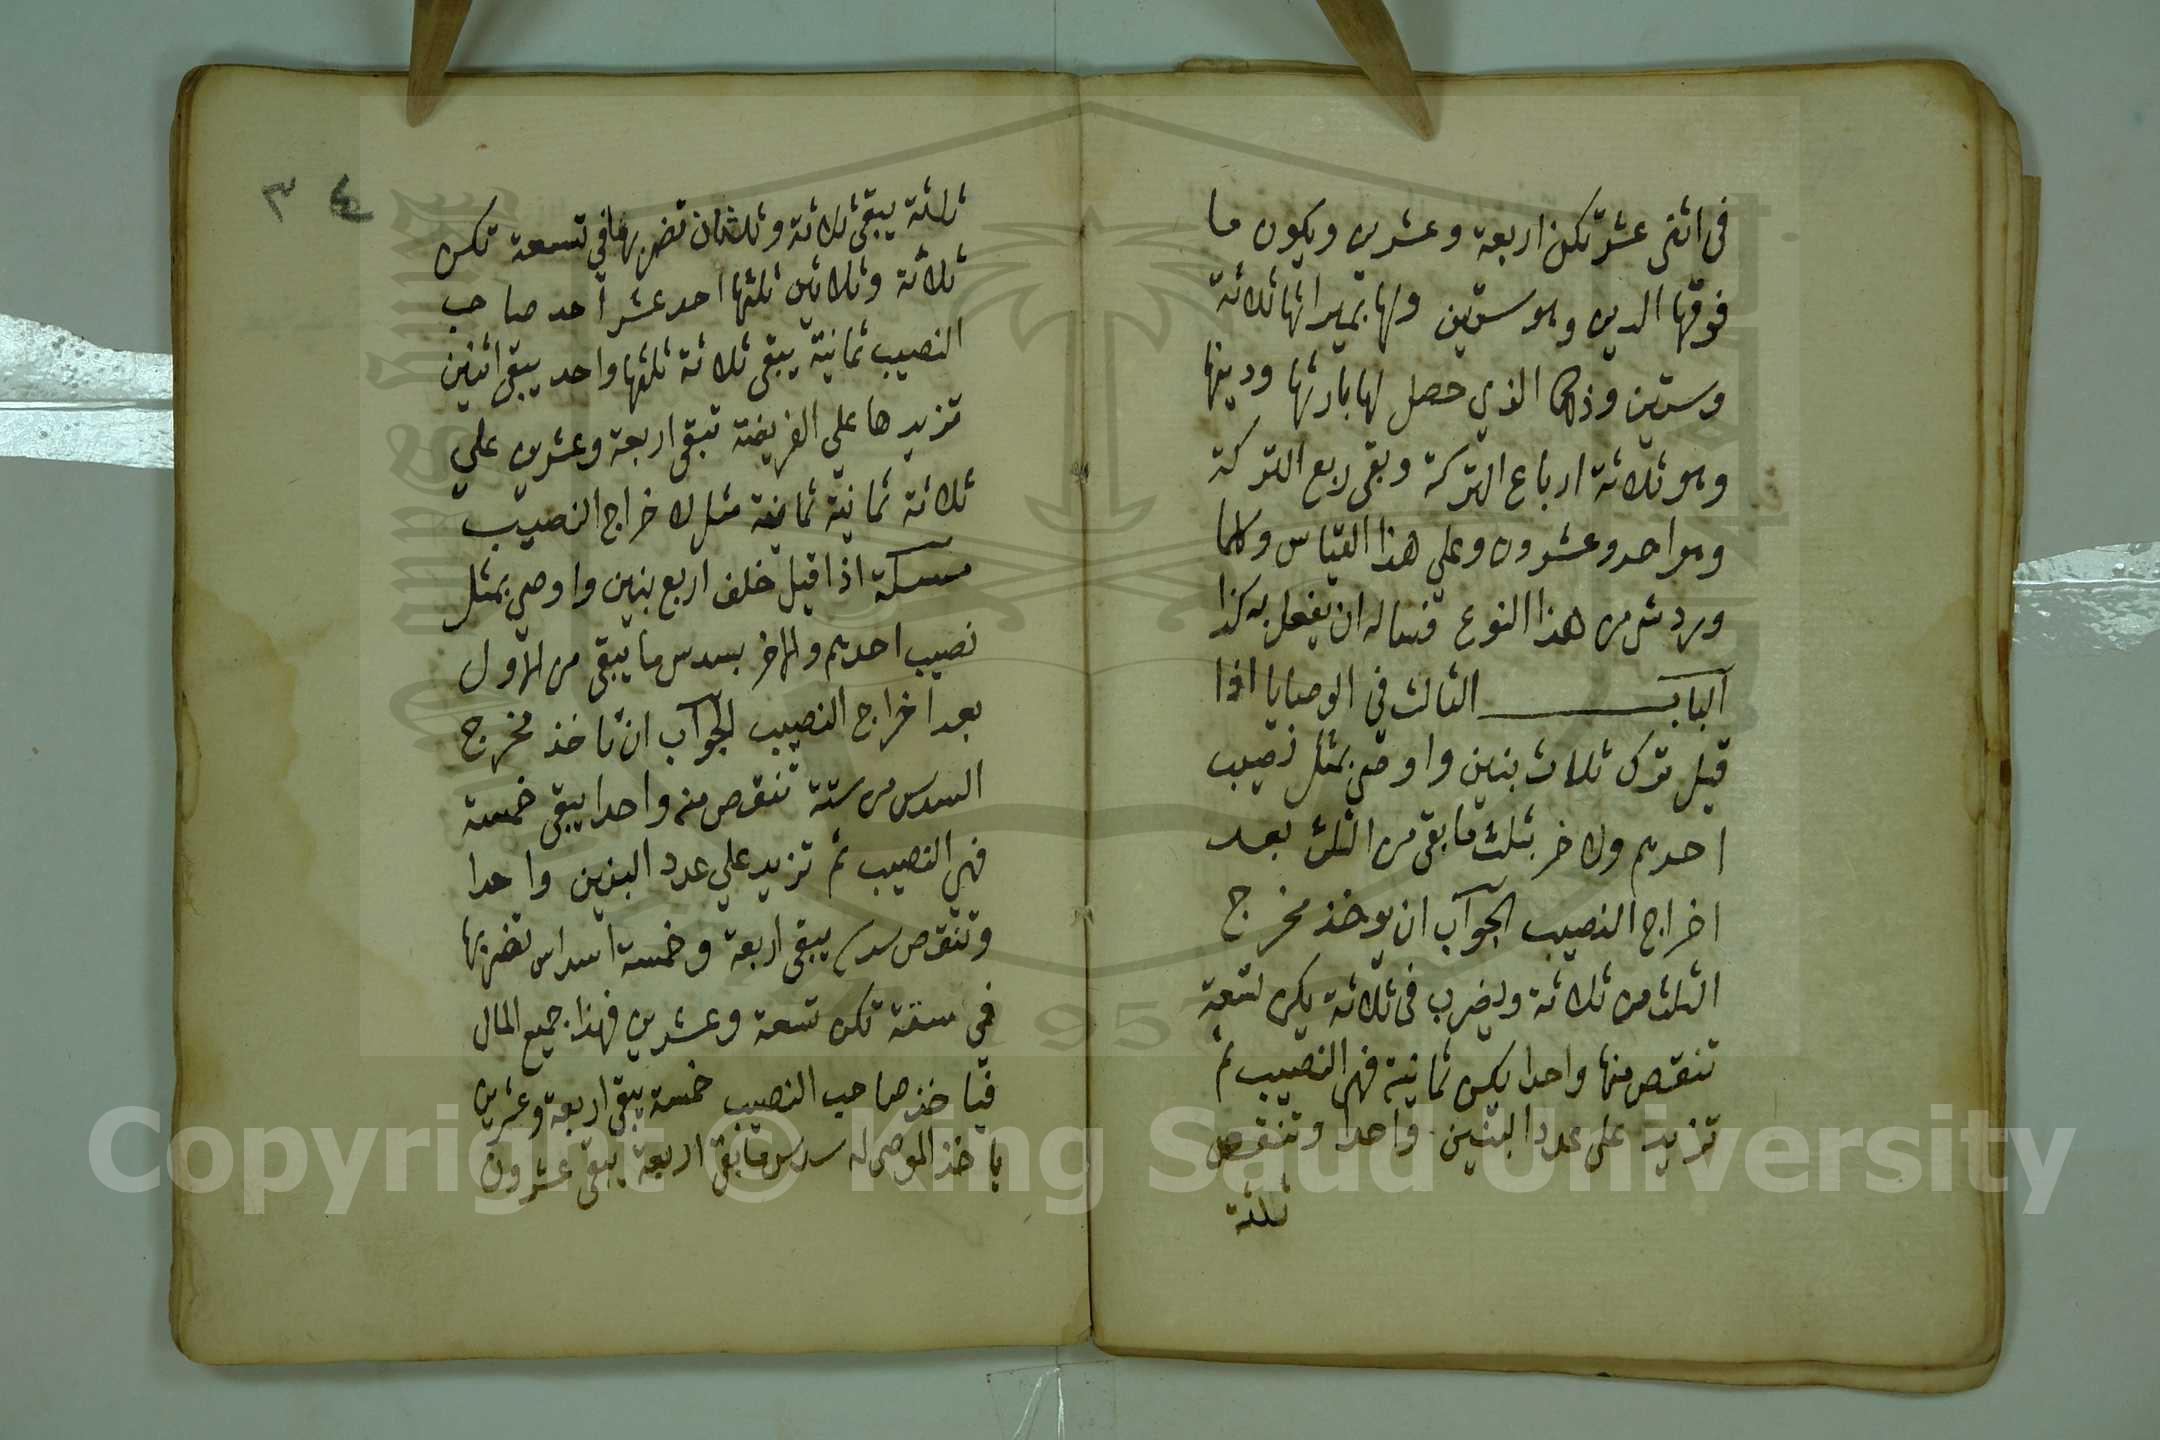 في اثنى عشر تكن اربعة وعشرين ويكون ما
فوقها الدين وهو ستين ولها بميراثها ثلاثة
وستين وذلك الذي حصل لها بارثها ودينها
وهو ثلاثة ارباع التركة وبقي ربع التركة
وهو احد وعشرون وعلي هذا القياس وكلما
ورد من هذا النوع ان يفعل به كذا
الباب الثالث في الوصايا اذا
قيل ترك ثلاث بنين واوصي بمثل نصيب
احدهم ولاخر بثلث ما بقي من الثلث بعد
اخراج النصيب الجواب ان يوخذ مخرج
الثلث من ثلاثة ويضرب في ثلاثة يكن تسعة
تنقص منها واحدا يكن ثمانية فهي النصيب ثم
تزيد على عدد البنين واحدا وتنقص
ثلثة
٣٤
ثلثة يبقى ثلاثة وثلثان تضربها في تسعة تكن
ثلاثة وثلاثين ثلثها احد عشر احد صاحب
النصيب ثمانية يبقى ثلاثة ثلثها واحد يبقى اثنين
تزيدها علي الفريضة تبقى اربعة وعشرين علي
ثلاثة ثمانية ثمانية مثل اخراج النصيب
مسئلة اذا قيل خلف اربع بنين واوصي بمثل
نصيب احدهم ولاخر بسدس ما يبقى من الاول
بعد اخراج النصيب الجواب ان تاخذ مخرج
السدس من ستة تنقص منه واحدا يبقى خمسة
فهي النصيب ثم تزيد علي عدد البنين واحدا
وتنقص سدس يبقى اربعة وخمسة اسداس تضربها
في ستة تكن تسعة وعشرين فهذا جميع المال
فياخذ صاحب النصيب خمسة يبقى اربعة وعشرين
ياخذ الموصى له سدس ما بقي اربعة يبقى عشرون
Copyright © King Saud University
1957